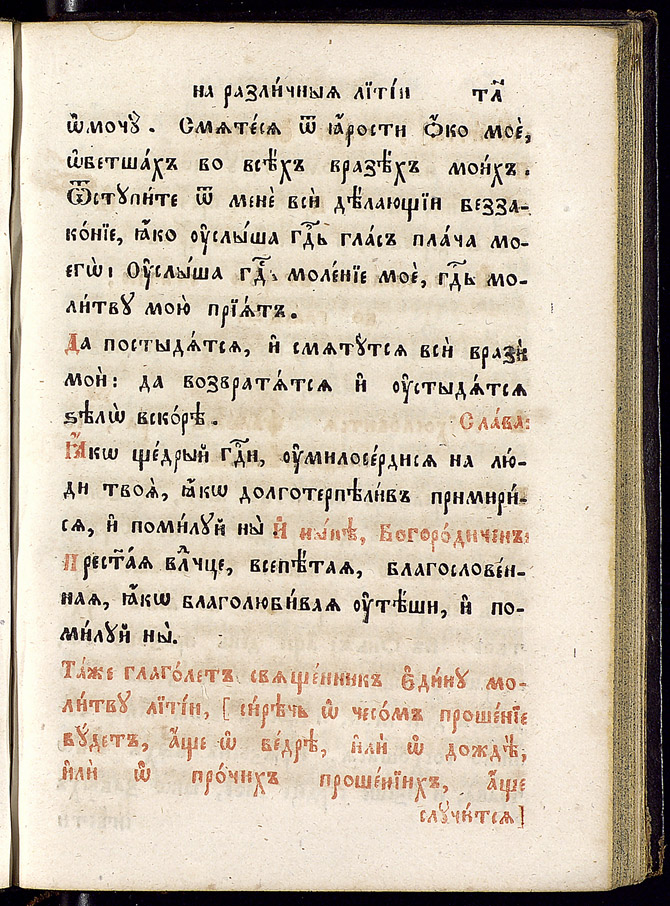 на разли́чныѧ лїті́и тл҃
ѡ҆мочꙋ̀. Смѧте́сѧ ѿ ꙗ҆́рости ѻ҆́ко моѐ,
ѡ҆бетша́хъ во всѣ́хъ вразѣ́хъ мои́хъ.
Ѿстꙋпи́те ѿ менѐ всѝ дѣ́лающїи безза-
ко́нїе, ꙗ҆́ко ᲂу҆слы́ша гдⷭ҇ь гла́съ пла́ча мо-
егѡ̀: Оу҆слы́ша гдⷭ҇ь моле́нїе моѐ, гдⷭ҇ь мо-
ли́твꙋ мою̀ прїѧ́тъ.
Да постыдѧ́тсѧ, и҆ смѧтꙋ́тсѧ всѝ вразѝ
моѝ: да возвратѧ́тсѧ и҆ ᲂу҆стыдѧ́тсѧ
ѕѣлѡ̀ вско́рѣ. Сла́ва:
Ꙗ҆́кѡ ще́дрый гдⷭ҇и, ᲂу҆милосе́рдисѧ на лю́-
ди твоѧ̑, ꙗ҆́кѡ долготерпѣли́въ примири́-
сѧ, и҆ поми́лꙋй ны̀. И҆ ны́нѣ, Богоро́диченъ:
Прест҃а́ѧ влⷣчце, всепѣ́таѧ, благослове́н-
наѧ, ꙗ҆́кѡ благолюби́ваѧ ᲂу҆тѣ́ши, и҆ по-
ми́лꙋй ны̀.
Та́же глаго́летъ свѧще́нникъ є҆ди́нꙋ мо-
ли́твꙋ лїті́и, [ си́рѣчь ѡ҆ чесо́мъ проше́нїе
бꙋ́детъ, а҆́ще ѡ҆ ве́дрѣ, и҆лѝ ѡ҆ дождѣ̀,
и҆лѝ ѡ҆ про́чихъ проше́нїихъ, а҆́ще
слꙋчи́тсѧ]